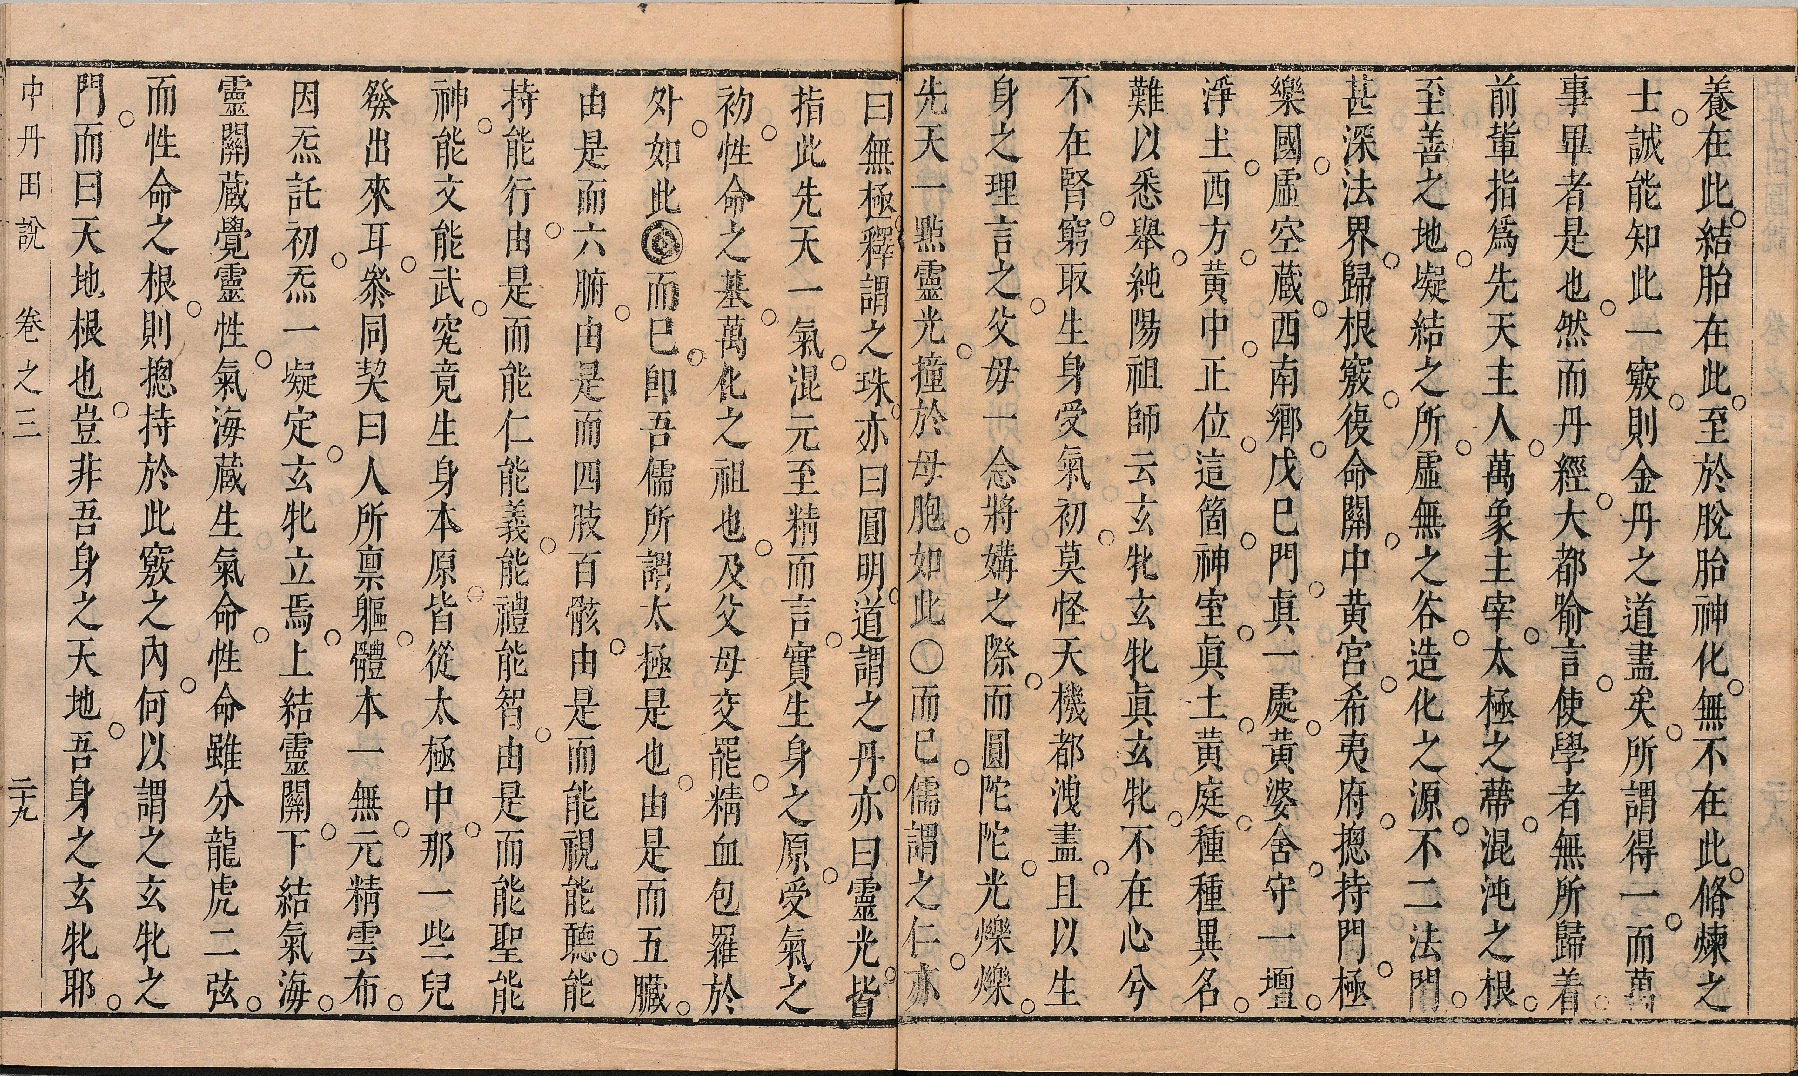 養在此結胎在此至於脫胎神化無不在此脩煉之
士誠能知此一竅則金丹之道盡矣所謂得一而萬
事畢者是也然而丹經大都喻言使學者無所歸着
前輩指爲先天主人萬象主宰太極之蒂混沌之根
至善之地凝結之所虛無之谷造化之源不二法門
甚深法界歸根竅復命關中黄宮希夷府摠持門極
樂國虛空藏西南鄉戊巳門眞一處黄婆舍守一壇
淨土西方黄中正位這箇神室眞土黄庭種種異名
難以悉舉純陽祖師云玄牝玄牝眞玄牝不在心兮
不在腎窮取生身受氣初莫怪天機都洩盡且以生
身之理言之父母一念將媾之際而圓陀陀光爍爍
先天一點靈光撞於母胞如此〇而巳儒謂之仁亦
曰無極釋謂之珠亦曰圓明道謂之丹亦曰靈光皆
指此先天一氣混元至精而言實生身之原受氣之
初性命之基萬化之祖也及父母交罷精血包羅於
外如此◎而巳卽吾儒所謂太極是也由是而五臟
由是而六腑由是而四肢百骸由是而能視能聽能
持能行由是而能仁能義能禮能智由是而能聖能
神能文能武究竟生身本原皆從太極中那一些兒
發出來耳叅同契曰人所禀軀體本一無元精雲布
因炁託初炁一凝定玄牝立焉上結靈關下結氣海
靈關藏覺靈性氣海藏生氣命性命雖分龍虎二弦
而性命之根則摠持於此竅之內何以謂之玄牝之
門而曰天地根也豈非吾身之天地吾身之玄牝耶
中丹田說　卷之三　二十九